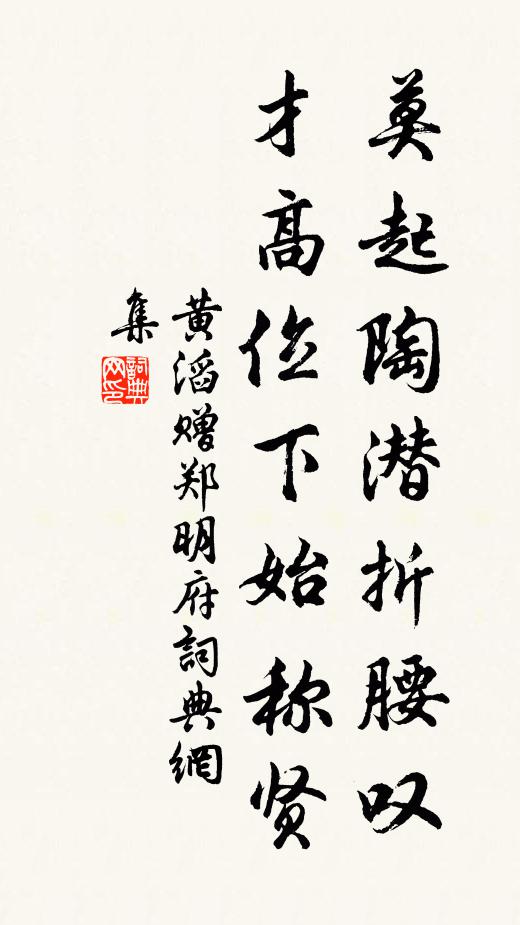 莫起陶潜折腰叹
才高位下始称贤
黄滔赠郑明府詞典網
集
詞典
网印